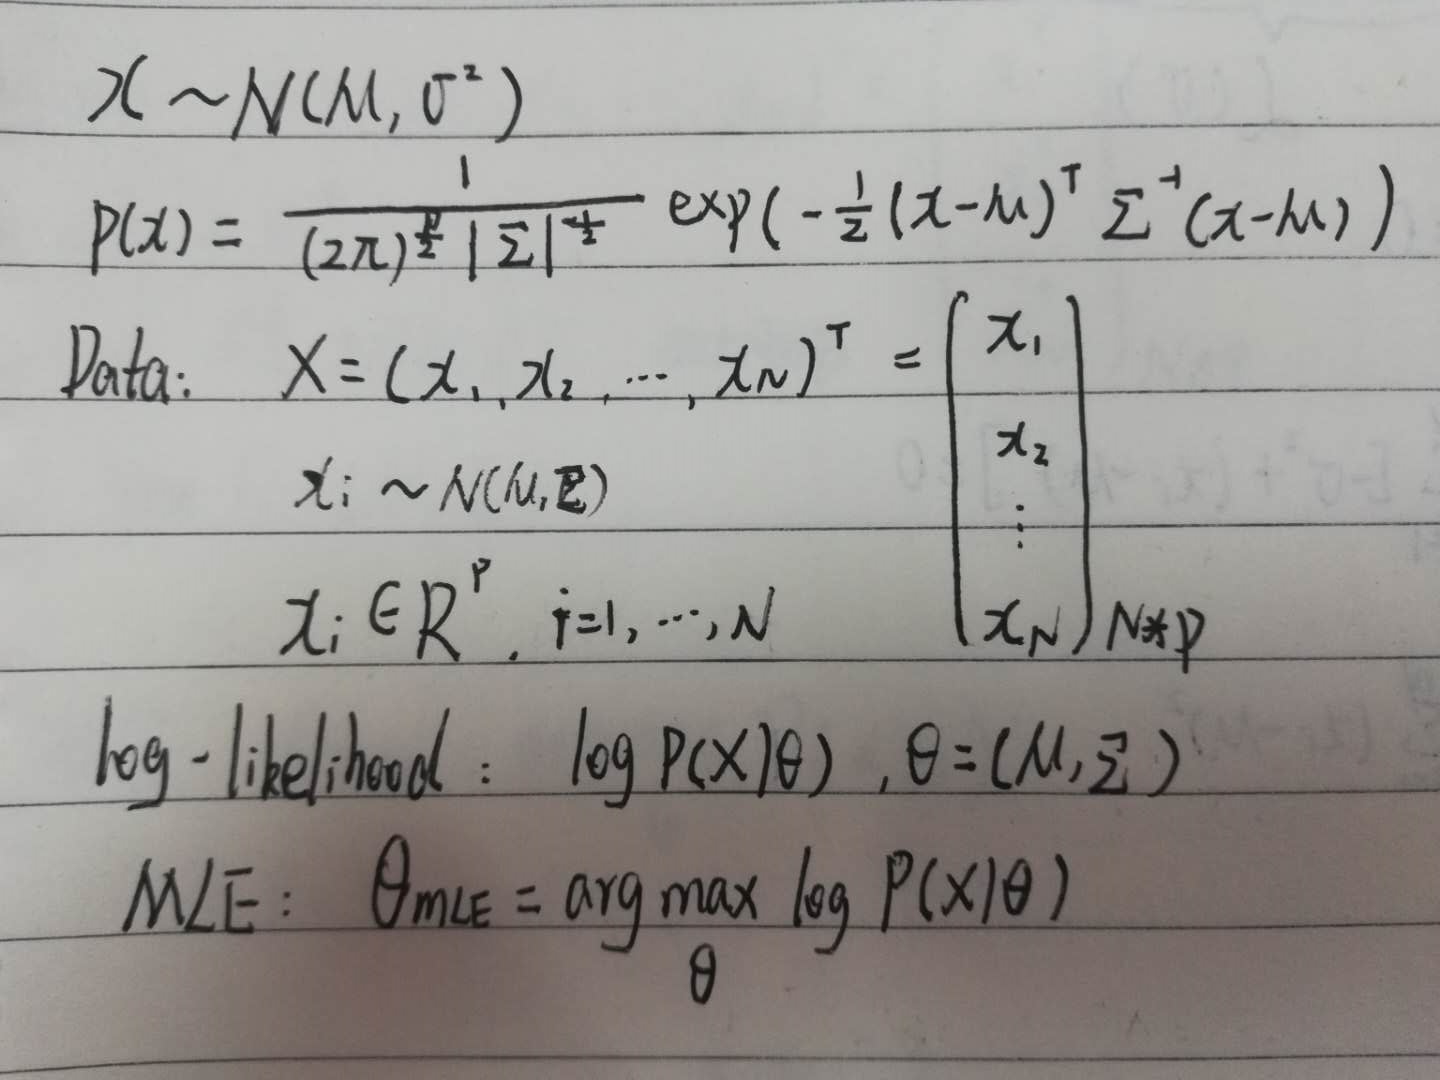 x ~ N(μ, σ²)
P(x) = 1 / ((2π)^{p/2} |Σ|^{1/2}) exp(-1/2 (x-μ)^T Σ^{-1} (x-μ))
Data: X = (x₁, x₂, ..., x_N)^T = (x₁ x₂ ⋮ x_N)_{N*p}
xᵢ ~ N(μ, Σ)
xᵢ ∈ R^p, i=1, ..., N
log-likelihood: log P(X|θ), θ=(μ, Σ)
MLE: θ_MLE = arg max_θ log P(X|θ)